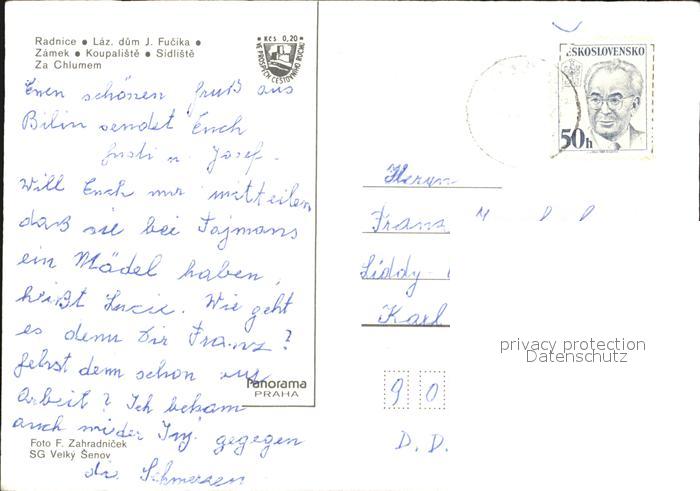 Radnice • Láz. dům J. Fučíka •
Zámek • Koupaliště • Sídliště
Za Chlumem
• Kčs 0,20 •
VE PROSPĚCH CESTOVNÍHO RUCHU
Einen schönen Gruß aus
Bilin sendet Euch
Gusti u. Josef.
Will Euch nur mitteilen,
daß sie bei Fajmans
ein Mädel haben,
heißt Lucie. Wie geht
es denn Dir Franz?
Gehst denn schon zur
Arbeit? Ich bekam
auch wieder Inj. gegegen
die Schmerzen
Panorama
PRAHA
Foto F. Zahradníček
SG Velký Šenov
ČESKOSLOVENSKO
50h
Herrn
Franz
Siddy
Karl
privacy protection
Datenschutz
9 0
D. D.